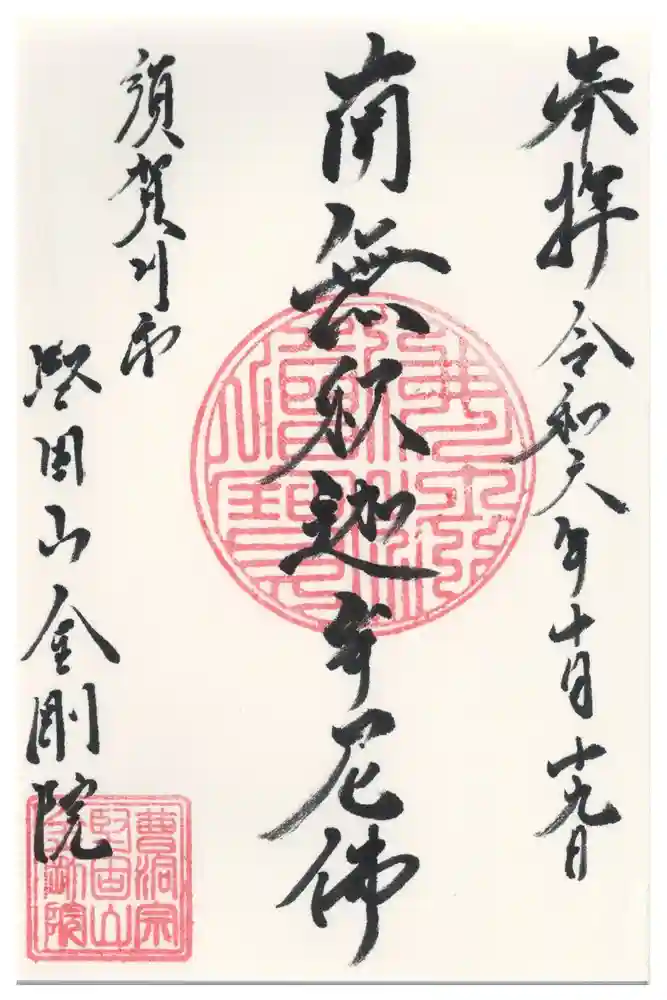 奉拝 令和元年十月十九日
南無釈迦牟尼佛
須賀川市
堅固山金剛院
曹洞宗
堅固山
金剛院